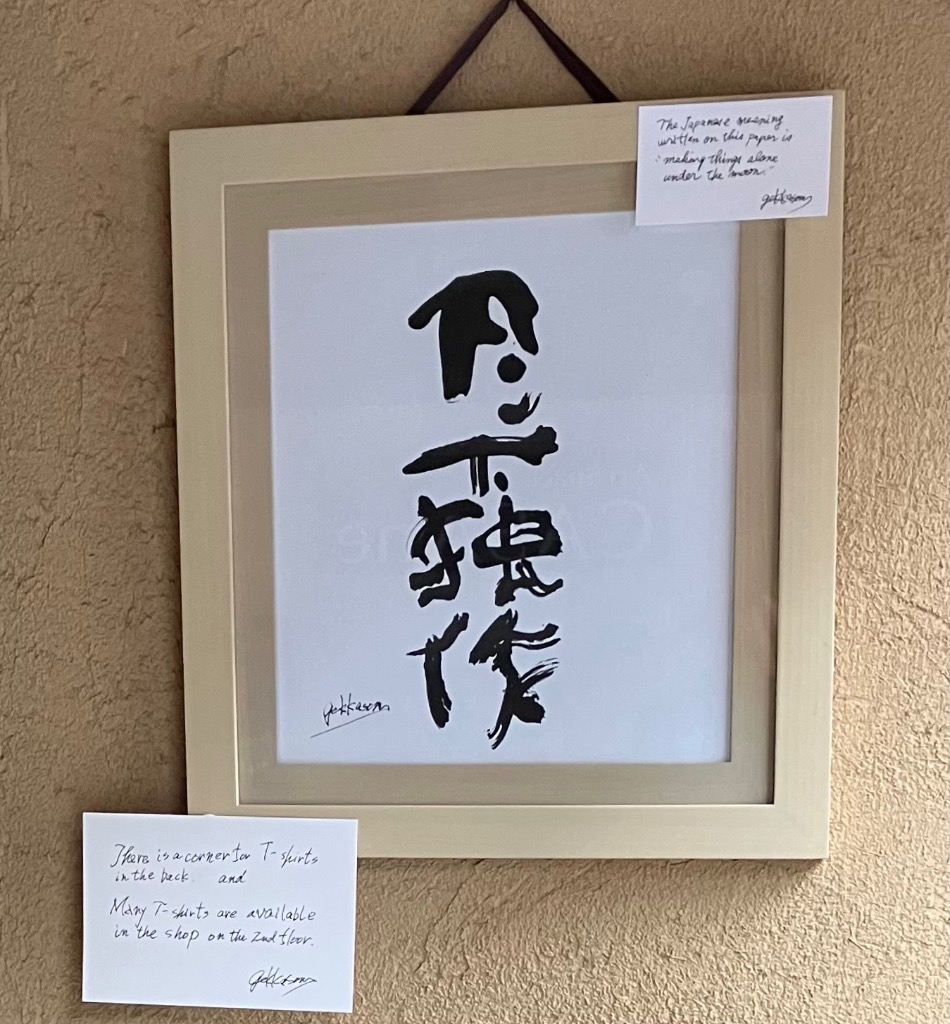 The Japanese meening
written on this paper is
"making things alone
under the moon."
gekkason
月下独作
gekkason
There is a corner for T-shirts
in the back. and
Many T-shirts are available
in the shop on the 2nd floor.
gekkason